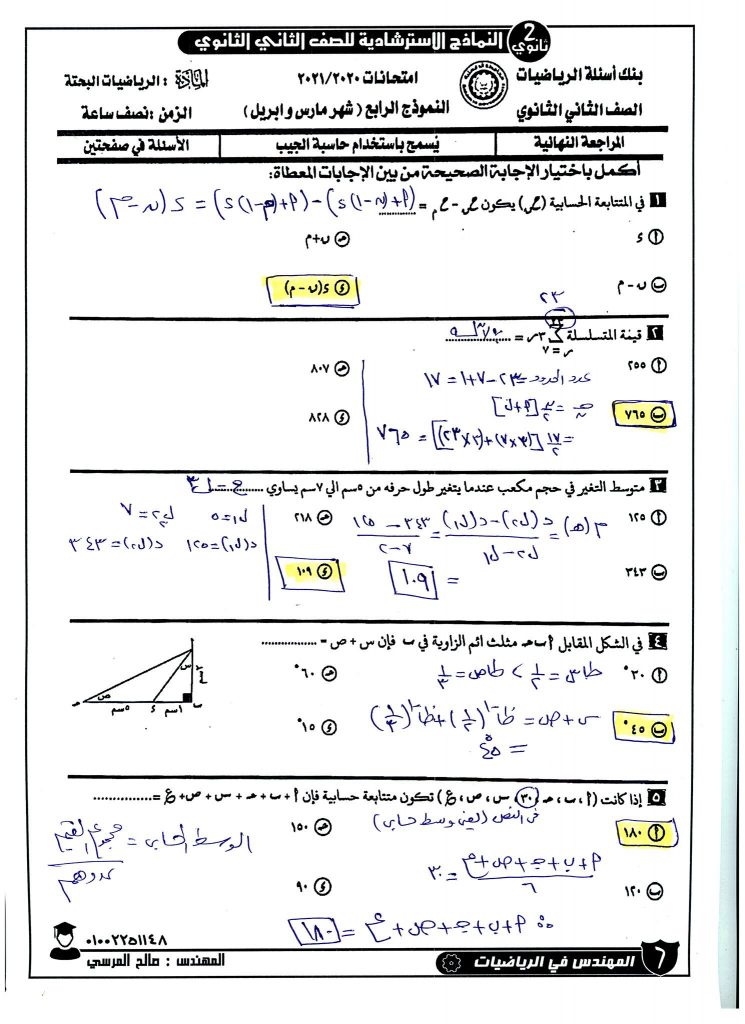 2 ثانوي
النماذج الإسترشادية للصف الثاني الثانوي
بنك أسئلة الرياضيات
امتحانات ٢٠٢١/٢٠٢٠
المادة : الرياضيات البحتة
الصف الثاني الثانوي
النموذج الرابع ( شهر مارس و ابريل )
الزمن : نصف ساعة
المراجعة النهائية
يُسمح باستخدام حاسبة الجيب
الأسئلة في صفحتين
أكمل باختيار الإجابة الصحيحة من بين الإجابات المعطاة:
١ في المتتابعة الحسابية (ح ن) يكون ح ن - ح م = (أ+(ن-١)ء) - (أ+(م-١)ء) = ء(ن-م)
أ ء
هـ ن+م
ب ن - م
ء ء(ن - م)
٢٣
٢ قيمة المتسلسلة ∑ ٣ر = ٧٦٥
ر = ٧
أ ٢٥٥
هـ ٨٠٧
عدد الحدود = ٢٣-٧+١ = ١٧
ب ٧٦٥
ء ٨٢٨
جـ ن = ن/٢ [أ+ل]
= ١٧/٢ [(٣×٧)+(٣×٢٣)] = ٧٦٥
٣ متوسط التغير في حجم مكعب عندما يتغير طول حرفه من ٥سم الي ٧سم يساوي .......... ح = ل٣
أ ١٢٥
هـ ٢١٨
م(هـ) = د(ل٢)-د(ل١) / ل٢-ل١ = ٣٤٣ - ١٢٥ / ٧-٢
ل١=٥ ل٢=٧
د(ل١)=١٢٥ د(ل٢)=٣٤٣
ب ٣٤٣
ء ١٠٩
= ١٠٩
٤ في الشكل المقابل أ ب هـ مثلث ائم الزاوية في ب فإن س + ص = ................
أ ٣٠°
هـ ٦٠°
طاس = ١/٢ ، طاص = ١/٣
ب ٤٥°
ء ١٥°
س+ص = ظا-١(١/٢)+ظا-١(١/٣)
= ٤٥°
س
ص
هـ ٥سم ء ١سم ب
٥ إذا كانت (أ ، ب ، هـ ، ٣٠ ، س ، ص ، ع) تكون متتابعة حسابية فإن أ + ب + هـ + س + ص + ع = ..............
في النص (يعني وسط حسابي)
أ ١٨٠
هـ ١٥٠
الوسط الحسابي = مجموع القيم / عددهم
أ+ب+جـ+ص+ع / ٦ = ٣٠
ب ١٢٠
ء ٩٠
∴ أ+ب+جـ+ص+ع = ١٨٠
٦ المهندس في الرياضيات
المهندس : صالح المرسي
٠١٠٠٢٢٥١١٤٨